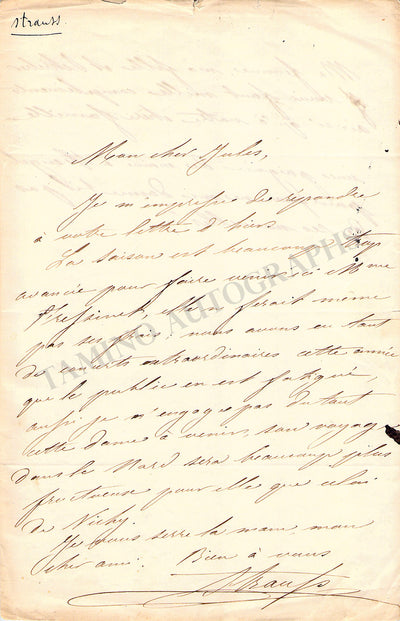 strauss.
Mon cher Jules,
Je m'empresse de répondre
à votre lettre d'hier.
La saison est beaucoup trop
avancée pour faire venir ici Mme
elle ne ferait même
pas ses frais; nous avons eu tant
de concerts extraordinaires cette année
que le public en est fatigué,
aussi je n'engage pas du tout
cette dame à venir, son voyage
dans le Nord sera beaucoup plus
fructueux pour elle que celui
de Vichy.
Je vous serre la main, mon
cher ami. Bien à vous
Strauss
TAMINO AUTOGRAPHS